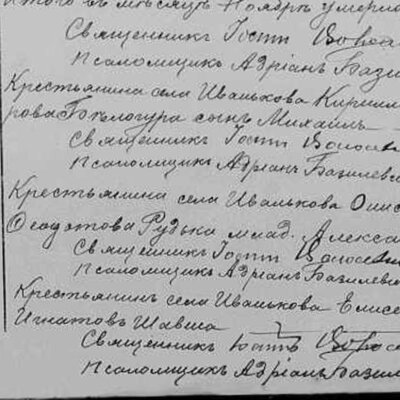 Итого въ мѣсяцѣ Ноябрѣ умерло
Священникъ Іостъ
Псаломщикъ Адріанъ Базил
Крестьянина села Иванькова Кирилл
рова сынъ Михаилъ
Священникъ Іостъ
Псаломщикъ Адріанъ Базилев
Крестьянина села Иванькова Онис
Ѳеодотова Рудька млад. Алекса
Священникъ Іостъ
Псаломщикъ Адріанъ Базилеви
Крестьянинъ села Иванькова Елисе
Игнатовъ Шавша
Священникъ Іостъ
Псаломщикъ Адріанъ Базил